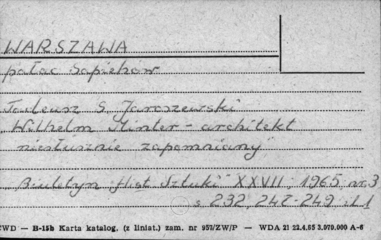 WARSZAWA
pałac Sapiehów
Tadeusz S. Jaroszewski
Wilhelm Minter - architekt
niesłusznie zapomniany"
Biuletyn Hist. Sztuki" XXVII, 1965, nr. 3
s. 232, 247-249 : il. 1
CWD — B-15b Karta katalog. (z liniat.) zam. nr 957/ZW/P — WDA 21 22.4.65 3.979.000 A-6